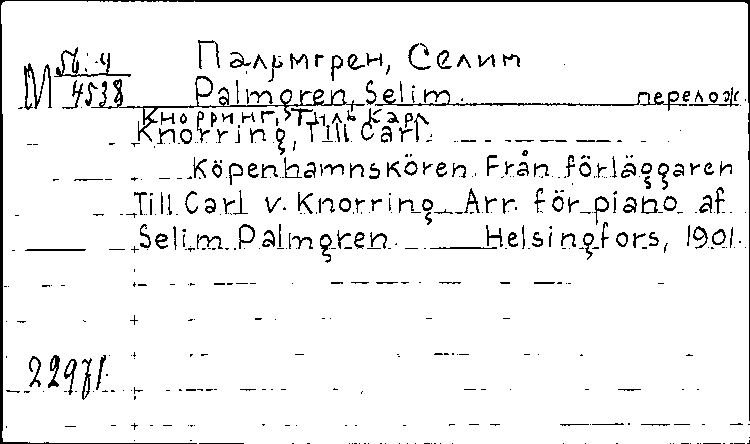 Пальмгрен, Селим
М 56:4
4538
Palmgren, Selim. перелож
Кнорринг, Тиль Карл
Knorring, Till Carl.
Köpenhamnskören. Från förläggaren
Till Carl v. Knorring. Arr. för piano af
Selim Palmgren. Helsingfors, 1901.
22971